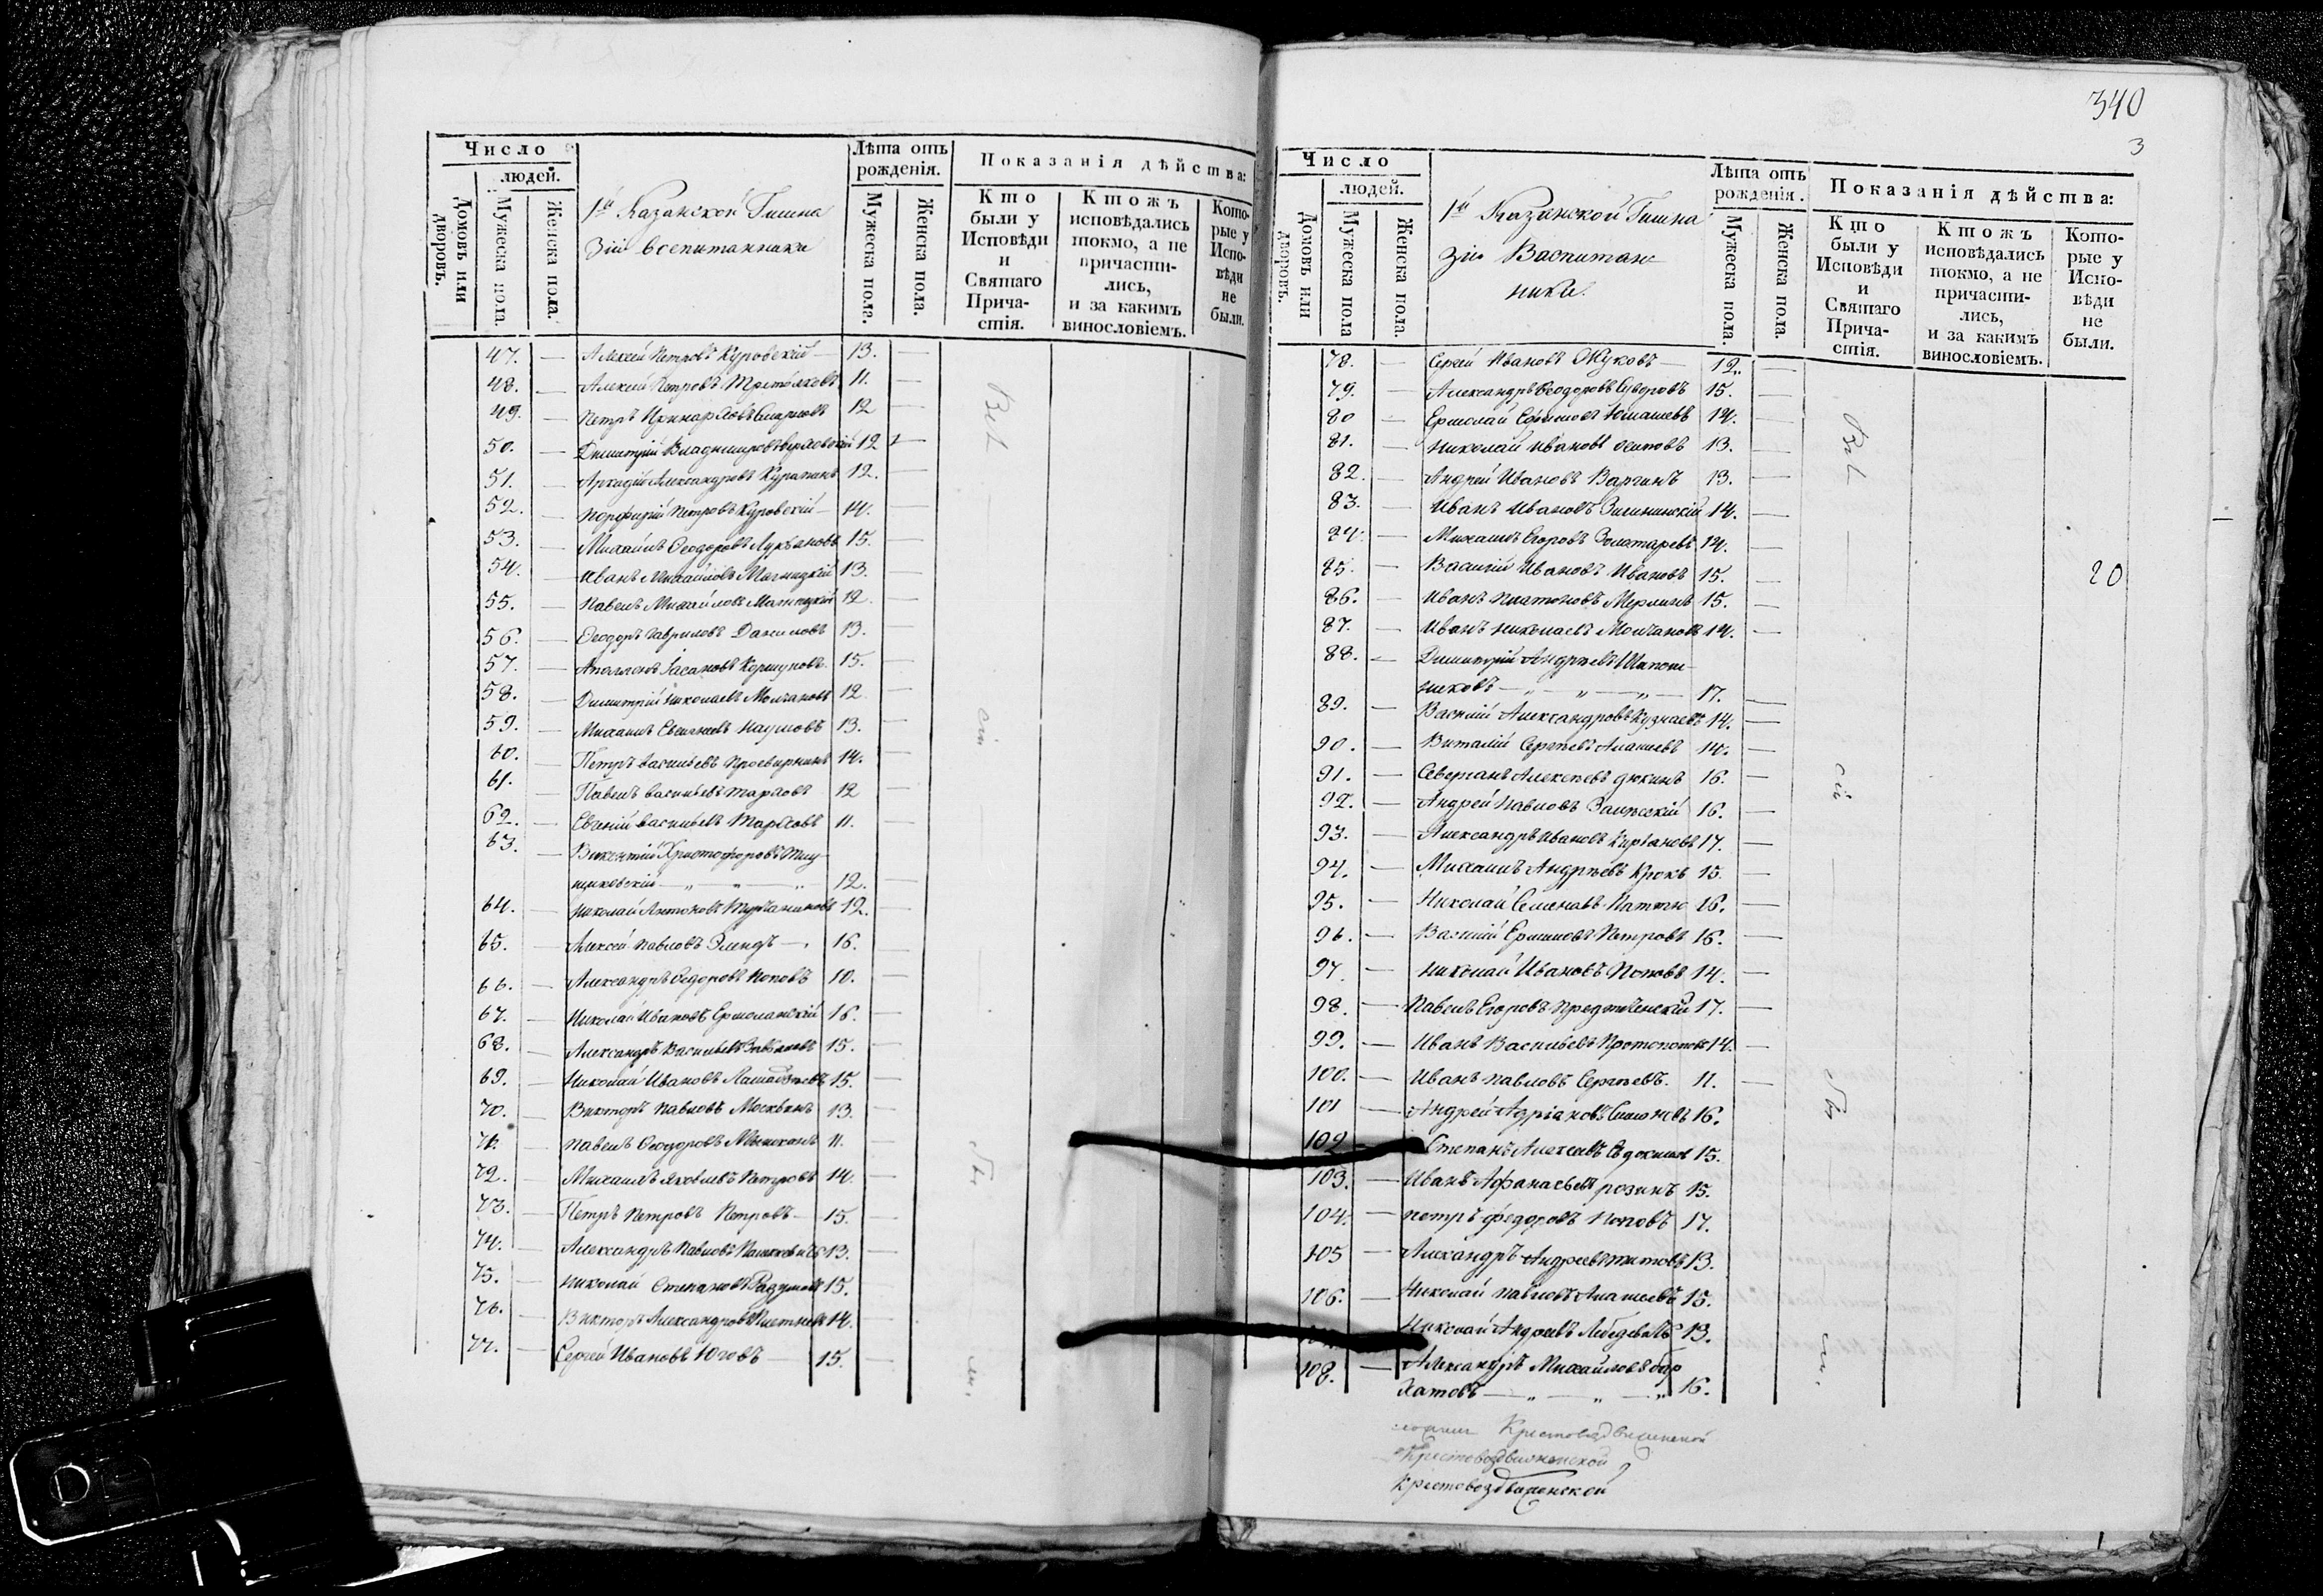 340
3
Число
людей.
Домовъ или дворовъ.
Мужеска пола.
Женска пола.
1й Казанской Гимна
зіи воспитанники
Лѣта отъ рожденія.
Мужеска пола.
Женска пола.
Показанія дѣйства:
Кто были у Исповѣди и Святаго Прича-стія.
Ктожъ исповѣдались токмо, а не причасти-лись, и за какимъ винословіемъ.
Кото-рые у Испо-вѣди не были.
47. — Алексей Петровъ Куровскій — 13. —
48. — Алексей Петровъ Третьяковъ 11. —
49. — Петръ Смирновъ 12 —
50. — Димитрій Владимировъ 12 —
51. — Аркадій Александровъ Куратинъ 12. —
52. — Порфирій Петровъ Куровскій — 14. —
53. — Михаилъ Ѳеодоровъ Лукьяновъ 15. —
54. — Иванъ Михайловъ Магницкій 13. —
55. — Павелъ Михайловъ Магницкій 12. —
56. — Ѳеодоръ Гавриловъ Даниловъ 13. —
57. — Коршуновъ 15. —
58. — Димитрій Николаевъ Молчановъ 12 —
59. — Михаилъ Евгеніевъ Наумовъ 13. —
60. — Петръ Васильевъ Просвирнинъ 14. —
61. — Павелъ Васильевъ Тарховъ 12 —
62. — Евгеній Васильевъ Тарховъ 11. —
63. — Викентій Христофоровъ Тми
щиковскій — „ — „ — „ 12. —
64. — Николай Антоновъ Турчаниновъ 12. —
65. — Алексей Павловъ Эмендъ — 16. —
66. — Александръ Ѳедоровъ Поповъ 10. —
67. — Николай Ивановъ Ермолинскій 16. —
68. — Александръ Васильевъ Завьяловъ 15. —
69. — Николай Ивановъ 15. —
70. — Викторъ Павловъ Москвинъ 13. —
71. — Павелъ Ѳеодоровъ 11. —
72. — Михаилъ Яковлевъ Петровъ 14. —
73. — Петръ Петровъ Петровъ — 15. —
74. — Александръ Павловъ 13. —
75. — Николай Степановъ Разумовъ 15. —
76. — Викторъ Александровъ Плетневъ 14. —
77. — Сергей Ивановъ Юговъ — 15. —
Число
людей.
Домовъ или дворовъ.
Мужеска пола
Женска пола.
1й Казанской Гимна
зіи Воспитан
ники.
Лѣта отъ рожденія.
Мужеска пола.
Женска пола.
Показанія дѣйства:
Кто были у Исповѣди и Святаго Прича-стія.
Ктожъ исповѣдались токмо, а не причасти-лись, и за какимъ винословіемъ.
Кото-рые у Испо-вѣди не были.
78. — Сергей Ивановъ Жуковъ — 12. —
79. — Александръ Ѳеодоровъ Суворовъ 15. —
80 — Ермолай Ефимовъ Юмашевъ 14. —
81. — Николай Ивановъ Осиповъ 13. —
82. — Андрей Ивановъ Варгинъ 13. —
83. — Иванъ Ивановъ Зилининскій 14. —
84. — Михаилъ Егоровъ Золотаревъ 14. —
85. — Василій Ивановъ Ивановъ 15. —
20
86. — Иванъ Платоновъ Мерлинъ 15. —
87. — Иванъ Николаевъ Молчановъ 14. —
88. — Димитрій Андреевъ Шапош
никовъ — „ — „ — „ — 17. —
89. — Василій Александровъ Кузнаевъ 14. —
90. — Виталій Сергѣевъ Алашеевъ 14. —
91. — Северіанъ Алексѣевъ Дюкинъ 16. —
92. — Андрей Павловъ Залѣсскій 16. —
93. — Александръ Ивановъ Кирьяновъ 17. —
94. — Михаилъ Андреевъ Крокъ 15. —
95. — Николай Семеновъ 16. —
96. — Василій Ермиловъ Петровъ 16. —
97. — Николай Ивановъ Поповъ 14. —
98. — Павелъ Егоровъ Предтеченскій 17. —
99. — Иванъ Васильевъ Протопоповъ 14. —
100. — Иванъ Павловъ Сергѣевъ. 11. —
101 — Андрей Адріановъ Симоневъ 16.
102 — Степанъ Алексѣевъ Евдокимов 15.
103. — Иванъ Афанасьевъ розинъ 15.
104. — петръ федоровъ Поповъ 17.
105 — Александръ Андреевъ титовъ 13.
106. — Николай Павловъ Алашеевъ 15.
Николай Андреевъ Лебедевъ 13.
108. — Александръ Михайловъ бар
хатовъ — „ — „ — „ 16.
Крестовоздвиженской
Крестовоздвиженской
Крестовоздвиженской